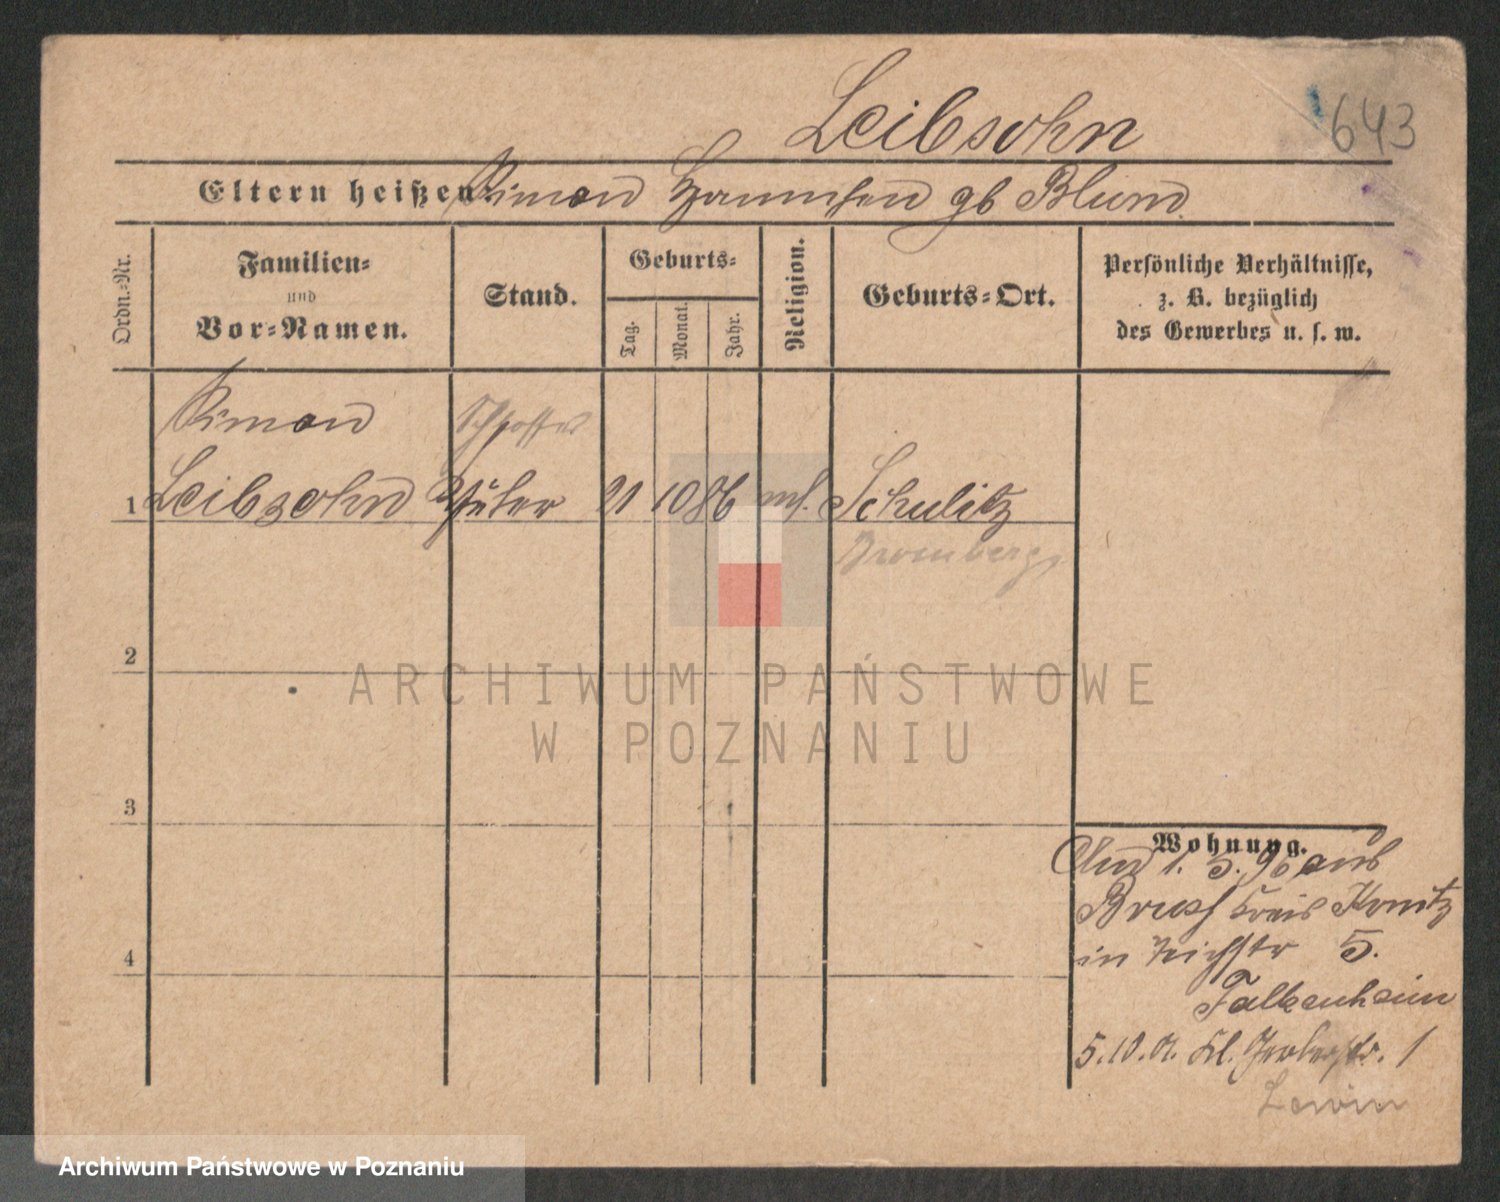 Leibsohn
643
Eltern heißen: Simon Hannchen gb Blum
Ordn.-Nr.
Familien-
und
Vor-Namen.
Stand.
Geburts-
Tag.
Monat.
Jahr.
Religion.
Geburts-Ort.
Persönliche Verhältnisse,
z. B. bezüglich
des Gewerbes u. s. w.
Simon
1 Leibsohn Schüler 21 10 86 mos. Schulitz
Bromberg
2
ARCHIWUM PAŃSTWOWE
W POZNANIU
3
Wohnung.
1. 5. 96 aus
Bruss Kreis Konitz
in 5.
Falkenheim
5.10. Kl. Gerberstr. 1
Lewin
4
Archiwum Państwowe w Poznaniu